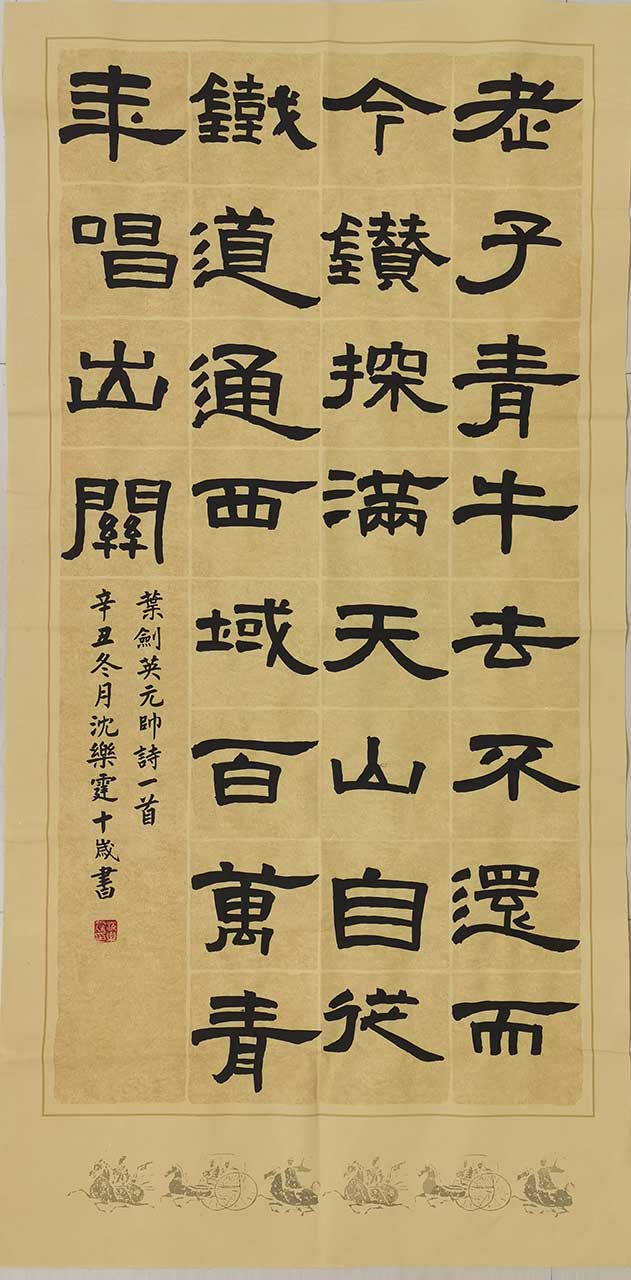 老子青牛去不還而
今鑽探滿天山自從
鐵道通西域百萬青
年唱出關
葉劍英元帥詩一首
辛丑冬月沈樂霆十歲書